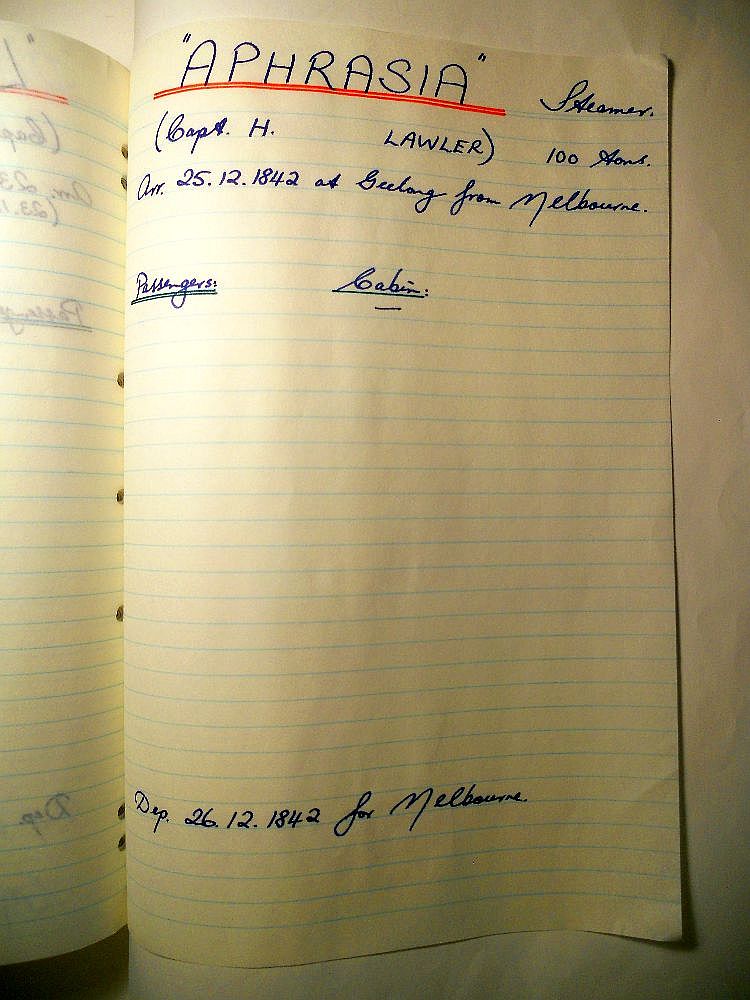 "APHRASIA" Steamer.
(Capt. H. LAWLER) 100 tons.
Arr. 25.12.1842 at Geelong from Melbourne.
Passengers: Cabin:
Dep. 26.12.1842 for Melbourne.